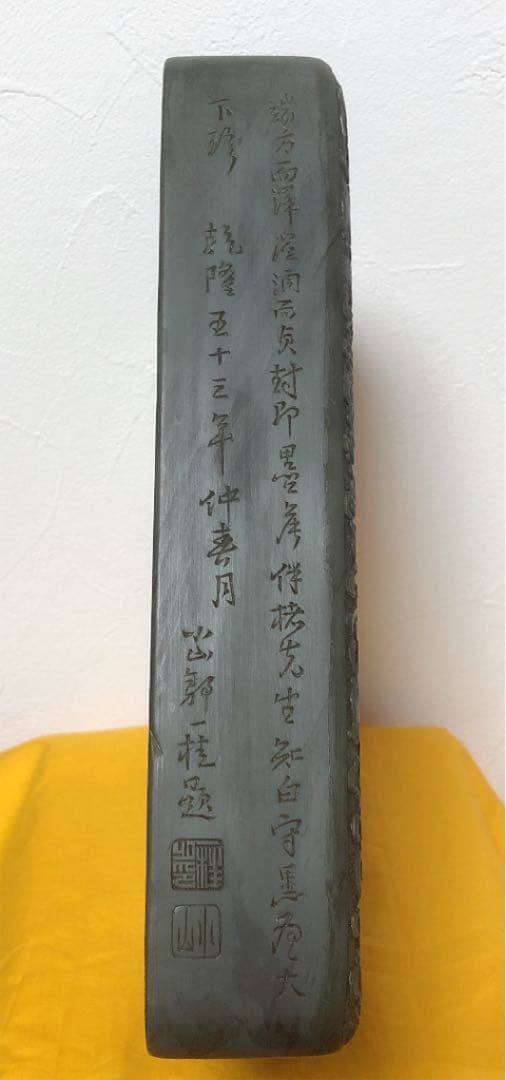 端方而澤温潤而貞封即墨侯伴楮先生知白守黑為天
下珍 乾隆五十三年仲春月 小山鄒一桂題
小山